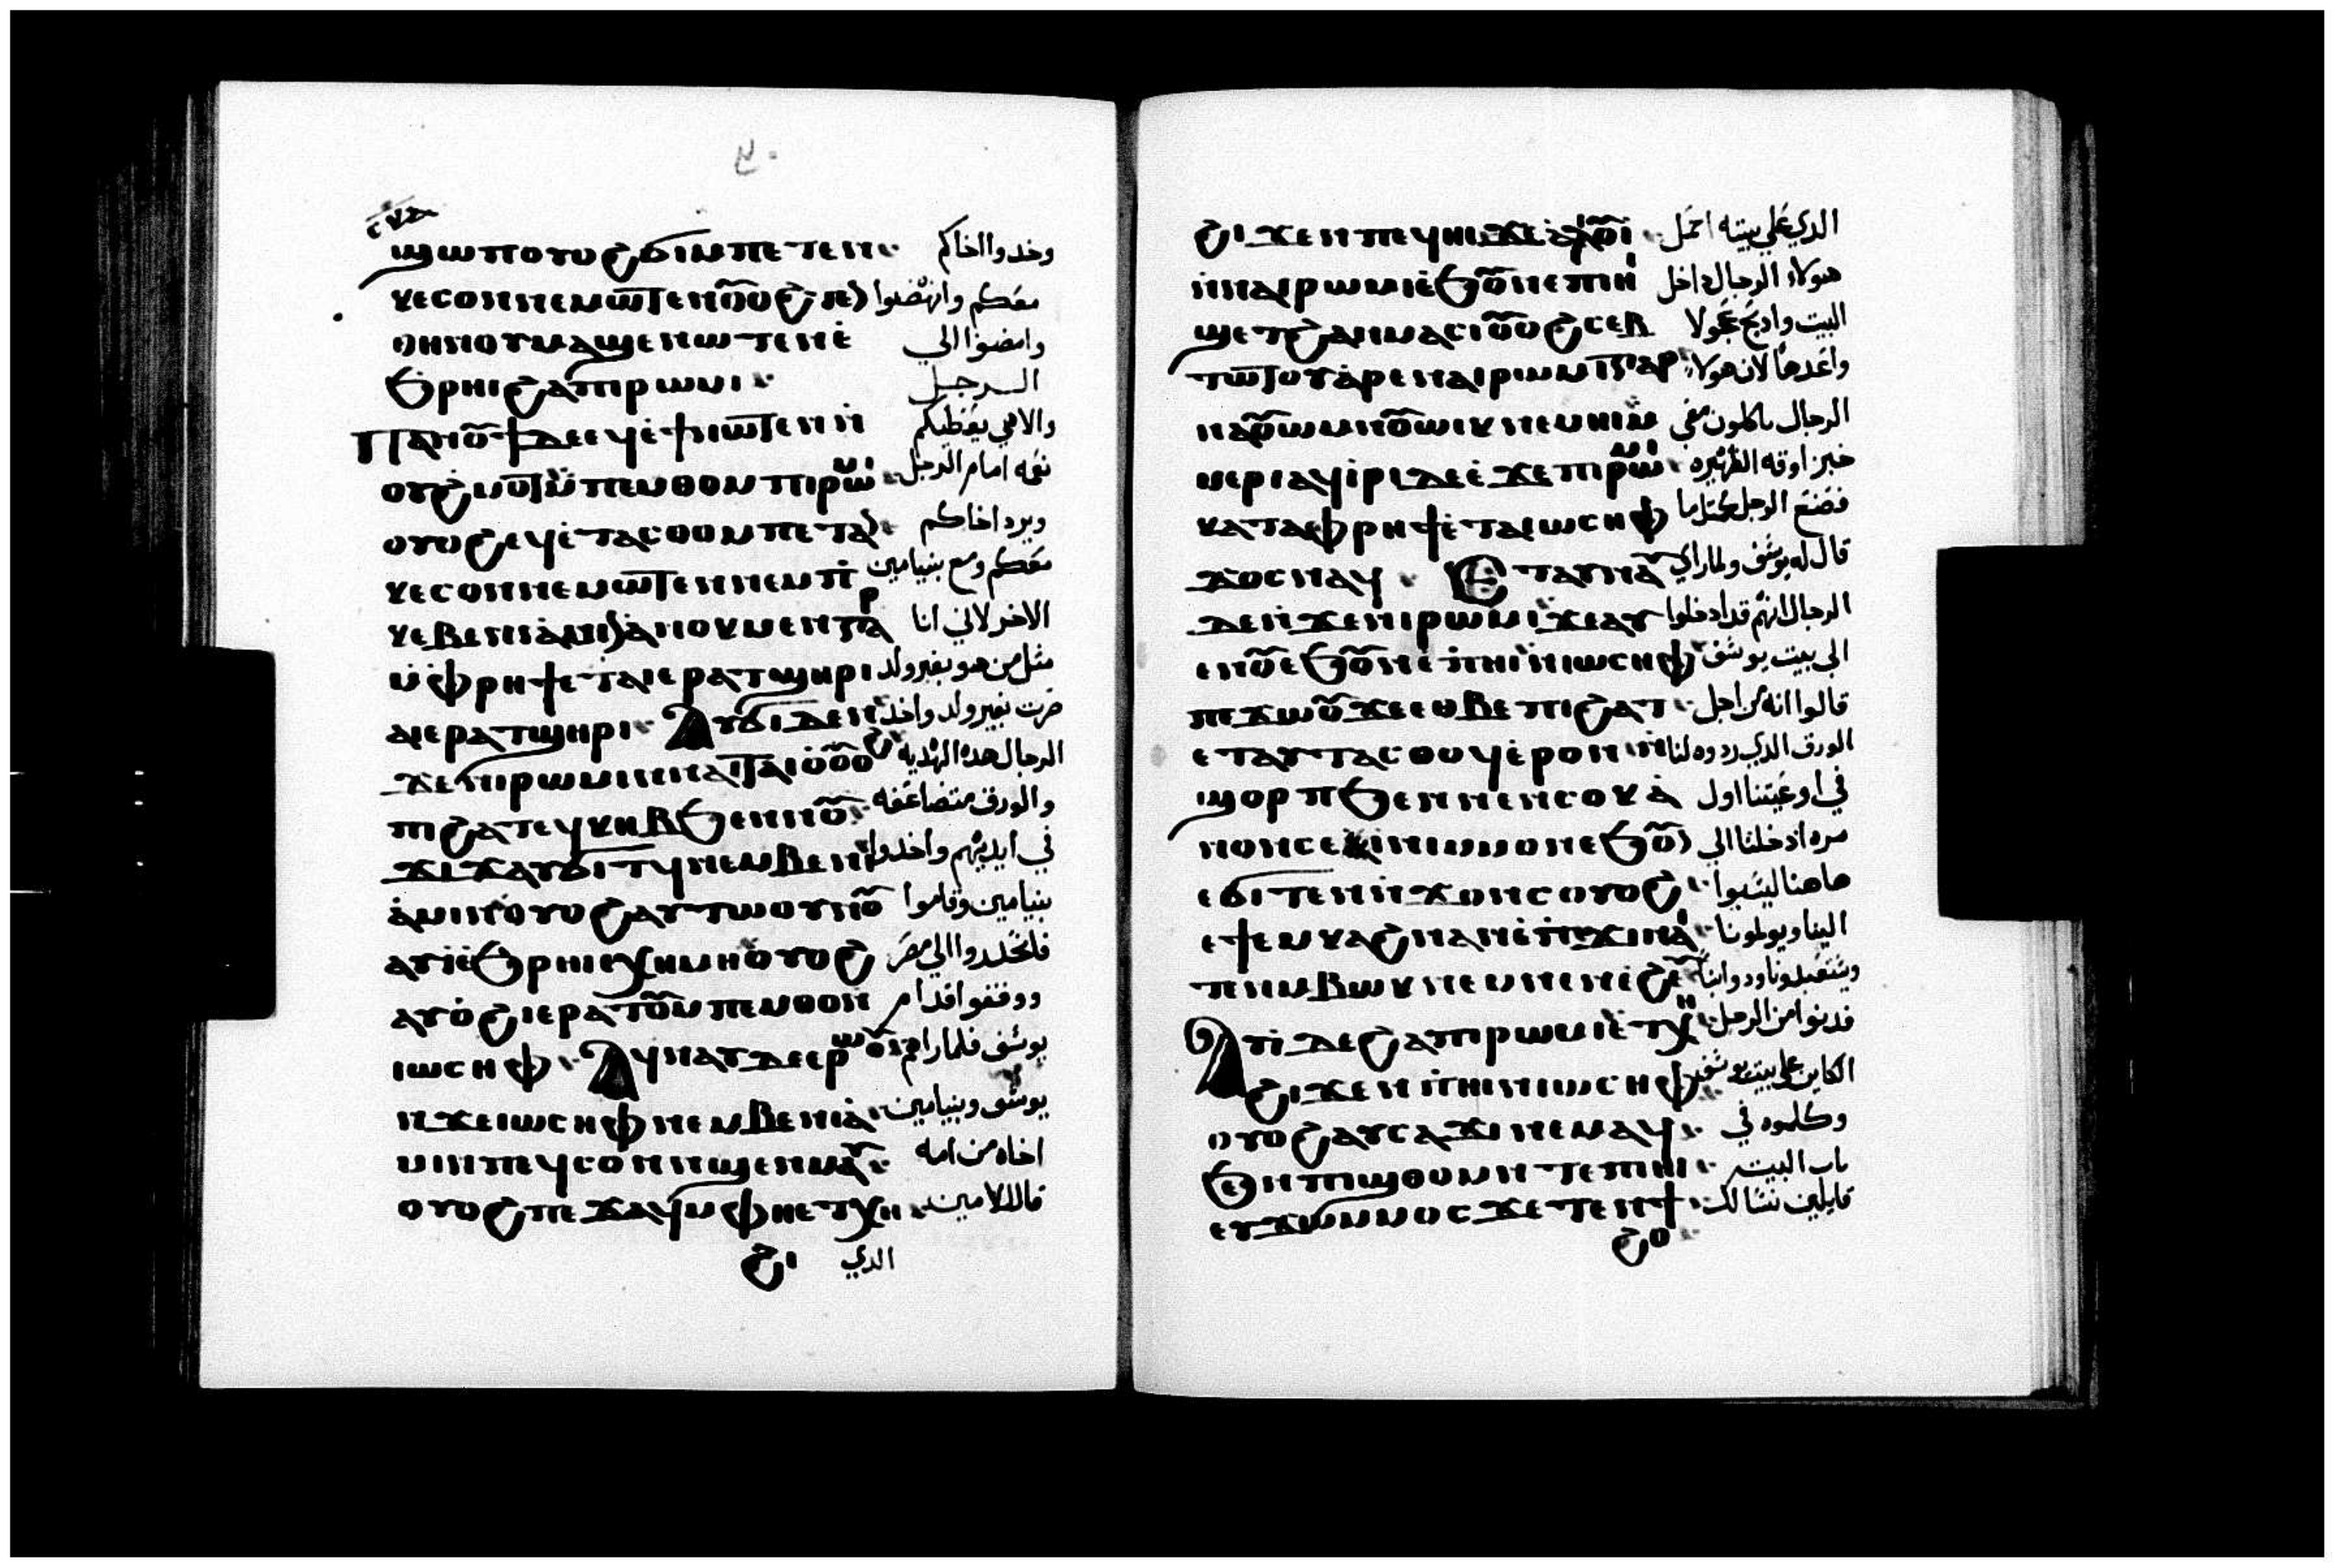 ϣⲱⲡ ⲟⲩⲟϩ ϭⲓ ⲙⲡⲉⲧⲉⲛ وخدوا اخاكم
ⲕⲉⲥⲟⲛ ⲛⲉⲙⲱⲧⲉⲛ معكم وانهضوا
ⲑⲏⲛⲟⲩ ⲙⲁϣⲉⲛⲱⲧⲉⲛ ⲉ̀ وامضوا الي
ϧⲣⲏⲓ ϩⲁ ⲡⲓⲣⲱⲙⲓ الرجل
ⲡⲁⲛⲟⲩϯ ⲇⲉ ⲉϥⲉ̀ϯ ⲛⲱⲧⲉⲛ ⲛ̀ والاهي يعطيكم
ⲟⲩϩⲙⲟⲧ ⲙ̀ⲡⲉⲙⲑⲟ ⲙⲡⲓⲣⲱⲙⲓ نعمه امام الرجل
ⲟⲩⲟϩ ⲉϥⲉ̀ⲧⲁⲥⲑⲟ ⲙⲡⲉⲧⲉⲛ ويرد اخاكم
ⲕⲉⲥⲟⲛ ⲛⲉⲙⲱⲧⲉⲛ ⲛⲉⲙ ⲡⲓ معكم ومع بنيامين
ⲕⲉⲃⲉⲛⲓⲁⲙⲓⲛ ⲁ̀ⲛⲟⲕ ⲙⲉⲛ ⲅⲁⲣ الاخر لاني انا
ⲙ̀ⲫⲣⲏϯ ⲉ̀ⲧⲁⲓⲉⲣⲁⲧϣⲏⲣⲓ مثل من هو بغير ولد
ⲁⲓⲉⲣⲁⲧϣⲏⲣⲓ ⲁⲩϭⲓ ⲇⲉ ⲛ صرت بغير ولد واخذ
ϫⲉ ⲛⲓⲣⲱⲙⲓ ⲛⲛⲁⲓⲧⲁⲓⲟ ⲟⲩⲟϩ الرجال هده الهديه
ⲡⲓϩⲁⲧ ⲉϥⲕⲏⲃ ϧⲉⲛ ⲛⲟⲩ والورق متضاعفه
ϫⲓϫ ⲁⲩϭⲓⲧϥ ⲛⲉⲙ ⲃⲉⲛⲓ في ايديهم واخدوا
ⲁ̀ⲙⲓⲛ ⲟⲩⲟϩ ⲁⲩⲧⲱⲟⲩⲛⲟⲩ بنيامين وقاموا
ⲁⲩⲓ̀ ⲉ̀ϧⲣⲏⲓ ⲉⲭⲏⲙⲓ ⲟⲩⲟϩ فانحدروا الي مصر
ⲁⲩⲟ̀ϩⲓ ⲉⲣⲁⲧⲟⲩ ⲙⲡⲉⲙⲑⲟ ⲛ ووقفوا قدام
ⲓⲱⲥⲏⲫ ⲁϥⲛⲁⲩ ⲇⲉ ⲉⲣⲱⲟⲩ يوسف فلما راهم
ⲛϫⲉ ⲓⲱⲥⲏⲫ ⲛⲉⲙ ⲃⲉⲛⲓⲁ̀ يوسف وبنيامين
ⲙⲓⲛ ⲡⲉϥⲥⲟⲛ ⲛϣⲉⲛⲙⲁⲩ اخاه من امه
ⲟⲩⲟϩ ⲡⲉϫⲁϥ ⲙⲫⲏ ⲉⲧⲭⲏ قال للامين
ϩⲓ الدي
ϩⲓϫⲉⲛ ⲡⲉϥⲏⲓ ϫⲉ ⲁ̀ⲗⲓⲟⲩⲓ الدي علي بيته احمل
ⲛ̀ⲛⲁⲓⲣⲱⲙⲓ ⲉ̀ϧⲟⲩⲛ ⲉⲡⲏⲓ هولاء الرجال داخل
ϣⲉⲧ ϩⲁⲛⲙⲁⲥⲓ ⲟⲩⲟϩ ⲥⲉⲃ البيت وادبح عجولا
ⲧⲱⲧⲟⲩ ⲁ̀ⲣⲉ ⲛⲁⲓⲣⲱⲙⲓ ⲅⲁⲣ واعدها لان هولاء
ⲛⲁⲟⲩⲱⲙ ⲛⲟⲩⲱⲓⲕ ⲛⲉⲙⲏⲓ ⲙ الرجال ياكلون معي
ⲙⲉⲣⲓ ⲁϥⲓ̀ⲣⲓ ⲇⲉ ⲛ̀ϫⲉ ⲡⲓⲣⲱⲙⲓ خبز اوقه الظهيره
ⲕⲁⲧⲁ ⲫⲣⲏϯ ⲉ̀ⲧⲁ ⲓⲱⲥⲏⲫ فصنع الرجل كمثل ما
ϫⲟⲥ ⲛⲁϥ ⲉⲧⲁⲩⲛⲁⲩ قال له يوسف ولما راي
ⲇⲉ ⲛ̀ϫⲉ ⲛⲓⲣⲱⲙⲓ ϫⲉ ⲁⲩ الرجال انهم قد ادخلوا
ⲉⲛⲟⲩ ⲉϧⲟⲩⲛ ⲉ̀ⲡⲏⲓ ⲛ̀ⲓⲱⲥⲏⲫ الي بيت يوسف
ⲡⲉϫⲱⲟⲩ ϫⲉ ⲉⲑⲃⲉ ⲡⲓϩⲁⲧ قالوا انه من اجل
ⲉⲧⲁⲩⲧⲁⲥⲑⲟϥ ⲉ̀ⲣⲟⲛ ⲛ̀ الورق الدي ردوه لنا
ϣⲟⲣⲡ ϧⲉⲛ ⲛⲉⲛⲥⲟⲕ ⲁ̀ في اوعيتنا اول
ⲛⲟⲛ ⲥⲉⲓ̀ⲛⲓ ⲙⲙⲟⲛ ⲉϧⲟⲩⲛ مره ادخلنا الي
ⲉϭⲓⲧⲉⲛ ⲛ̀ϫⲟⲛⲥ ⲟⲩⲟϩ هاهنا ليثبوا
ⲉϯⲉⲙⲕⲁϩ ⲛⲁⲛ ⲉ̀ⲡϫⲓⲛ الينا ويولمونا
ⲧⲉⲛ ⲙⲃⲱⲕ ⲛⲉⲙ ⲛⲉⲛⲉ̀ϩⲉⲩ ويستعبدونا ودوابنا
ⲁⲩⲓ̀ ⲇⲉ ϩⲁ ⲡⲓⲣⲱⲙⲓ ⲉ̀ⲧⲭⲏ فدنوا من الرجل
ϩⲓϫⲉⲛ ⲡⲏⲓ ⲛⲓⲱⲥⲏⲫ الكاين علي بيت يوسف
ⲟⲩⲟϩ ⲁⲩⲥⲁϫⲓ ⲛⲉⲙⲁϥ وكلموه في
ϧⲉⲛ ⲡϣⲑⲟⲙ ⲛⲧⲉ ⲡⲏⲓ باب البيت
ⲉⲩϫⲱⲙⲙⲟⲥ ϫⲉ ⲧⲉⲛϯ قايلين نسالك
ϩⲟ